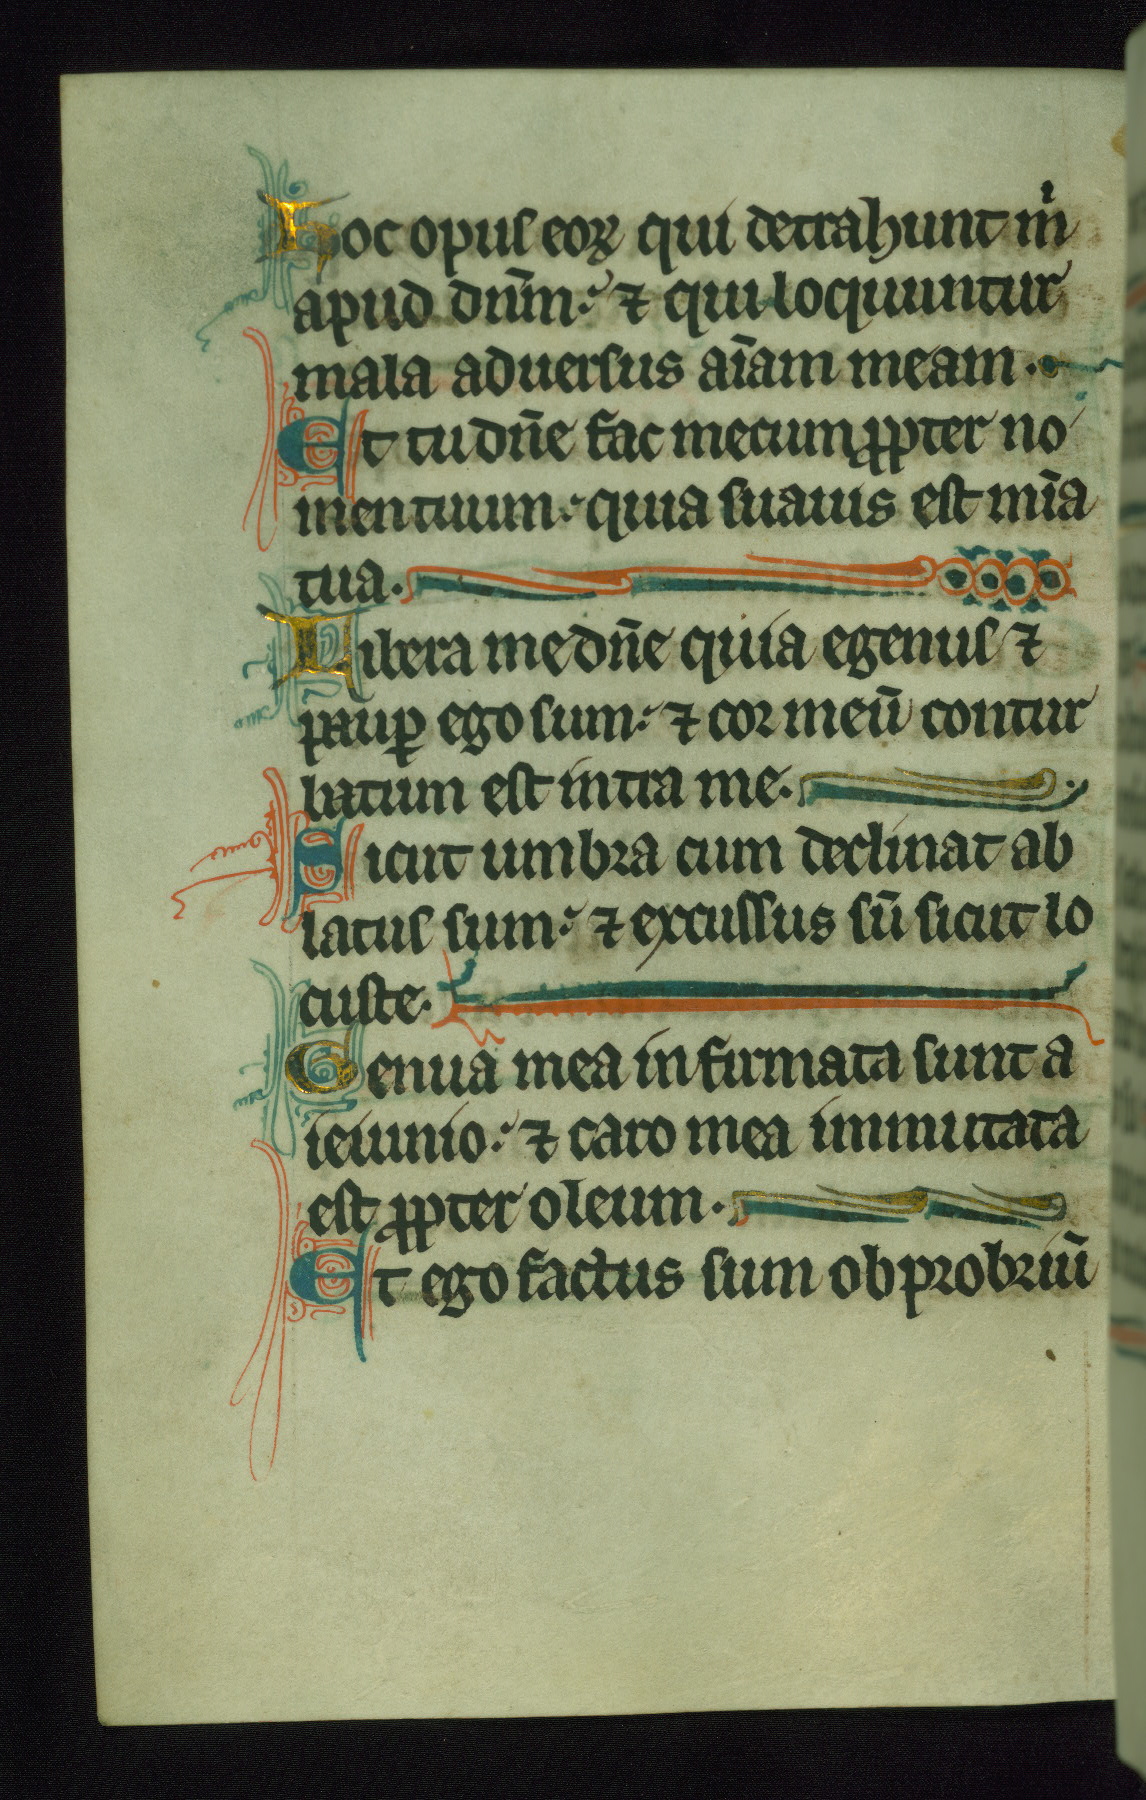 Hoc opus eoꝝ qui detrahunt m̉
apud dn̄m: ⁊ qui loquuntur
mala aduersus aīam meam.
Et tu dn̄e fac mecum ꝓpter no
men tuum: quia suauis est mīa
tua.
Libera me dn̄e quia egenus ⁊
paup̱ ego sum: ⁊ cor meū contur
batum est intra me.
Sicut umbra cum declinat ab
latus sum: ⁊ excussus sū sicut lo
custe.
Genua mea infirmata sunt a
ieiunio: ⁊ caro mea immutata
est ꝓpter oleum.
Et ego factus sum obprobriū